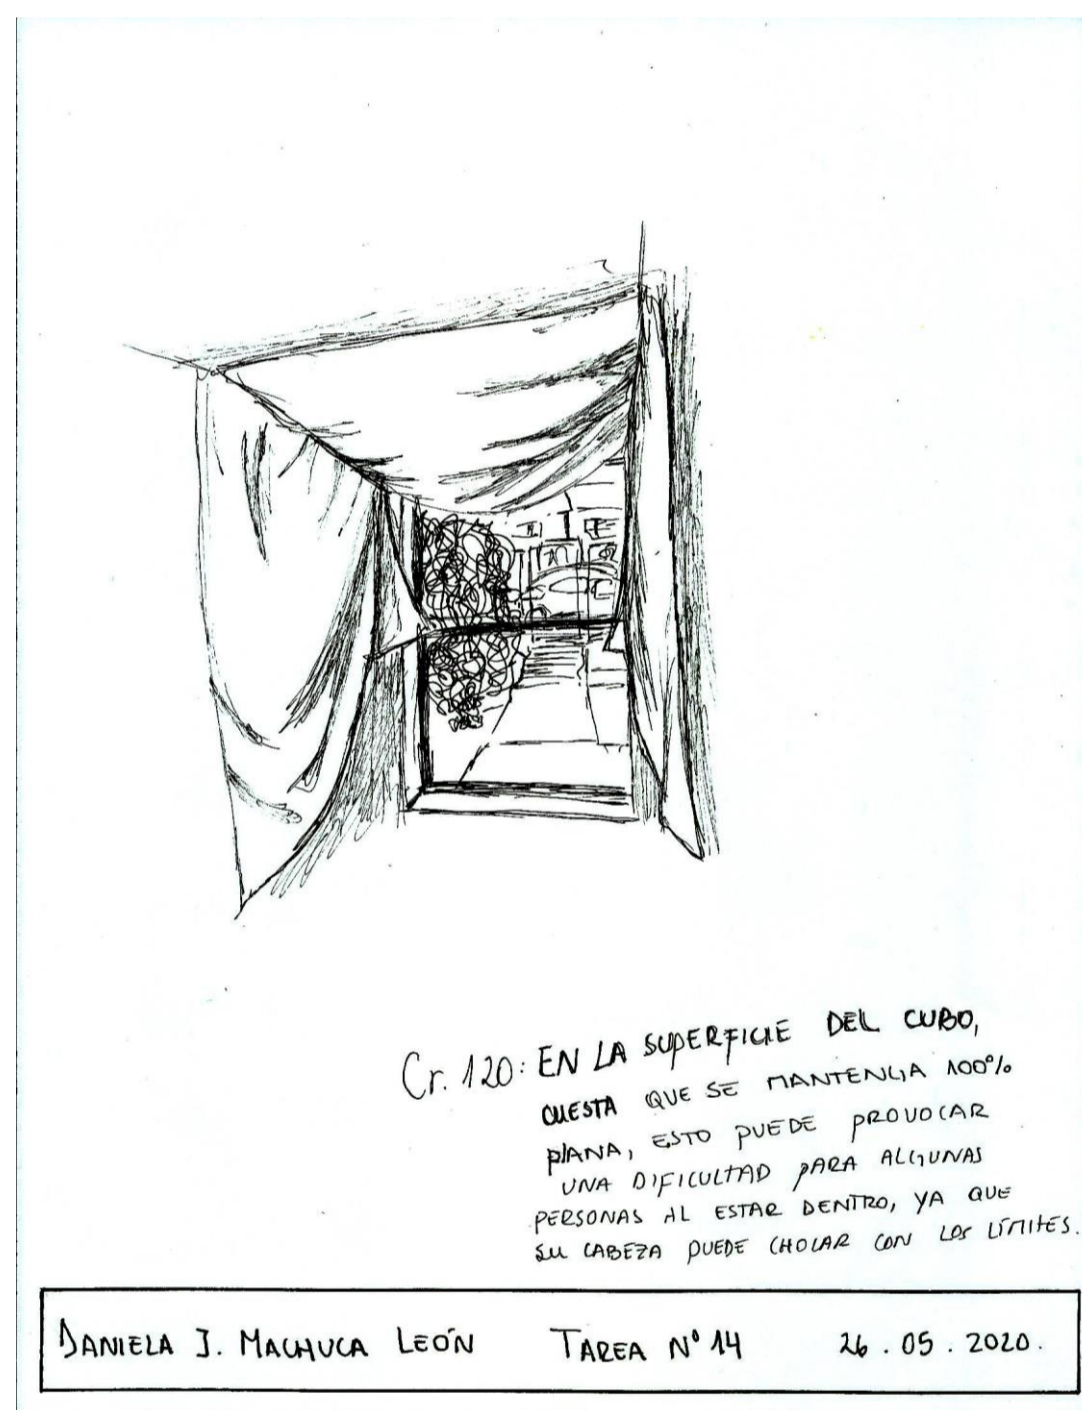 Cr. 120: EN LA SUPERFICIE DEL CUBO,
CUESTA QUE SE MANTENGA 100%
PLANA, ESTO PUEDE PROVOCAR
UNA DIFICULTAD PARA ALGUNAS
PERSONAS AL ESTAR DENTRO, YA QUE
SU CABEZA PUEDE CHOCAR CON LOS LÍMITES.
DANIELA J. MACHUCA LEÓN TAREA N° 14 26.05.2020.